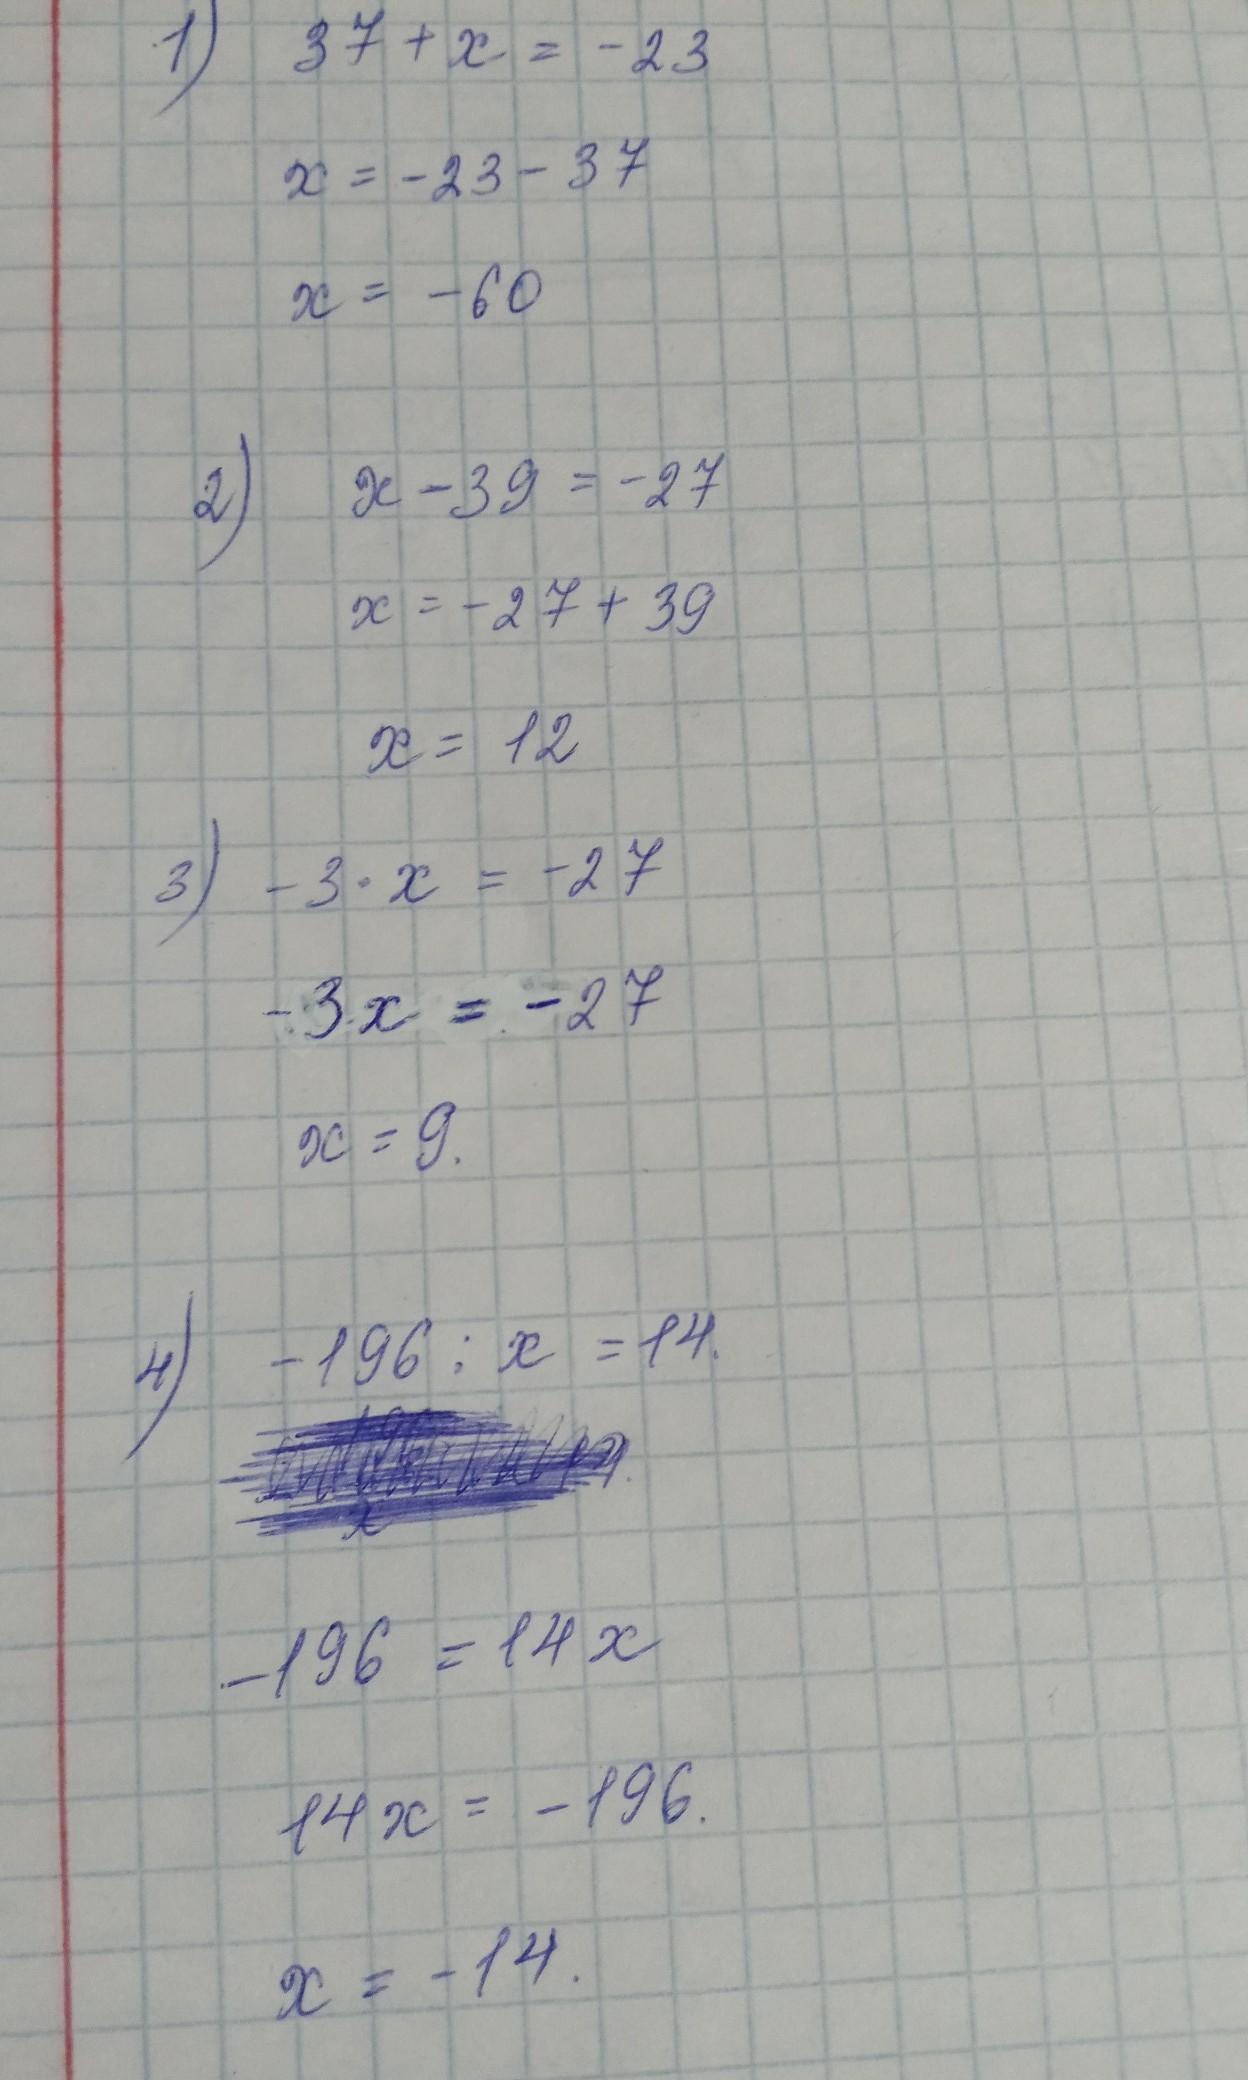 1) 37 + x = -23
x = -23 - 37
x = -60
2) x - 39 = -27
x = -27 + 39
x = 12
3) -3 · x = -27
-3x = -27
x = 9.
4) -196 : x = 14.
-196 = 14x
14x = -196.
x = -14.